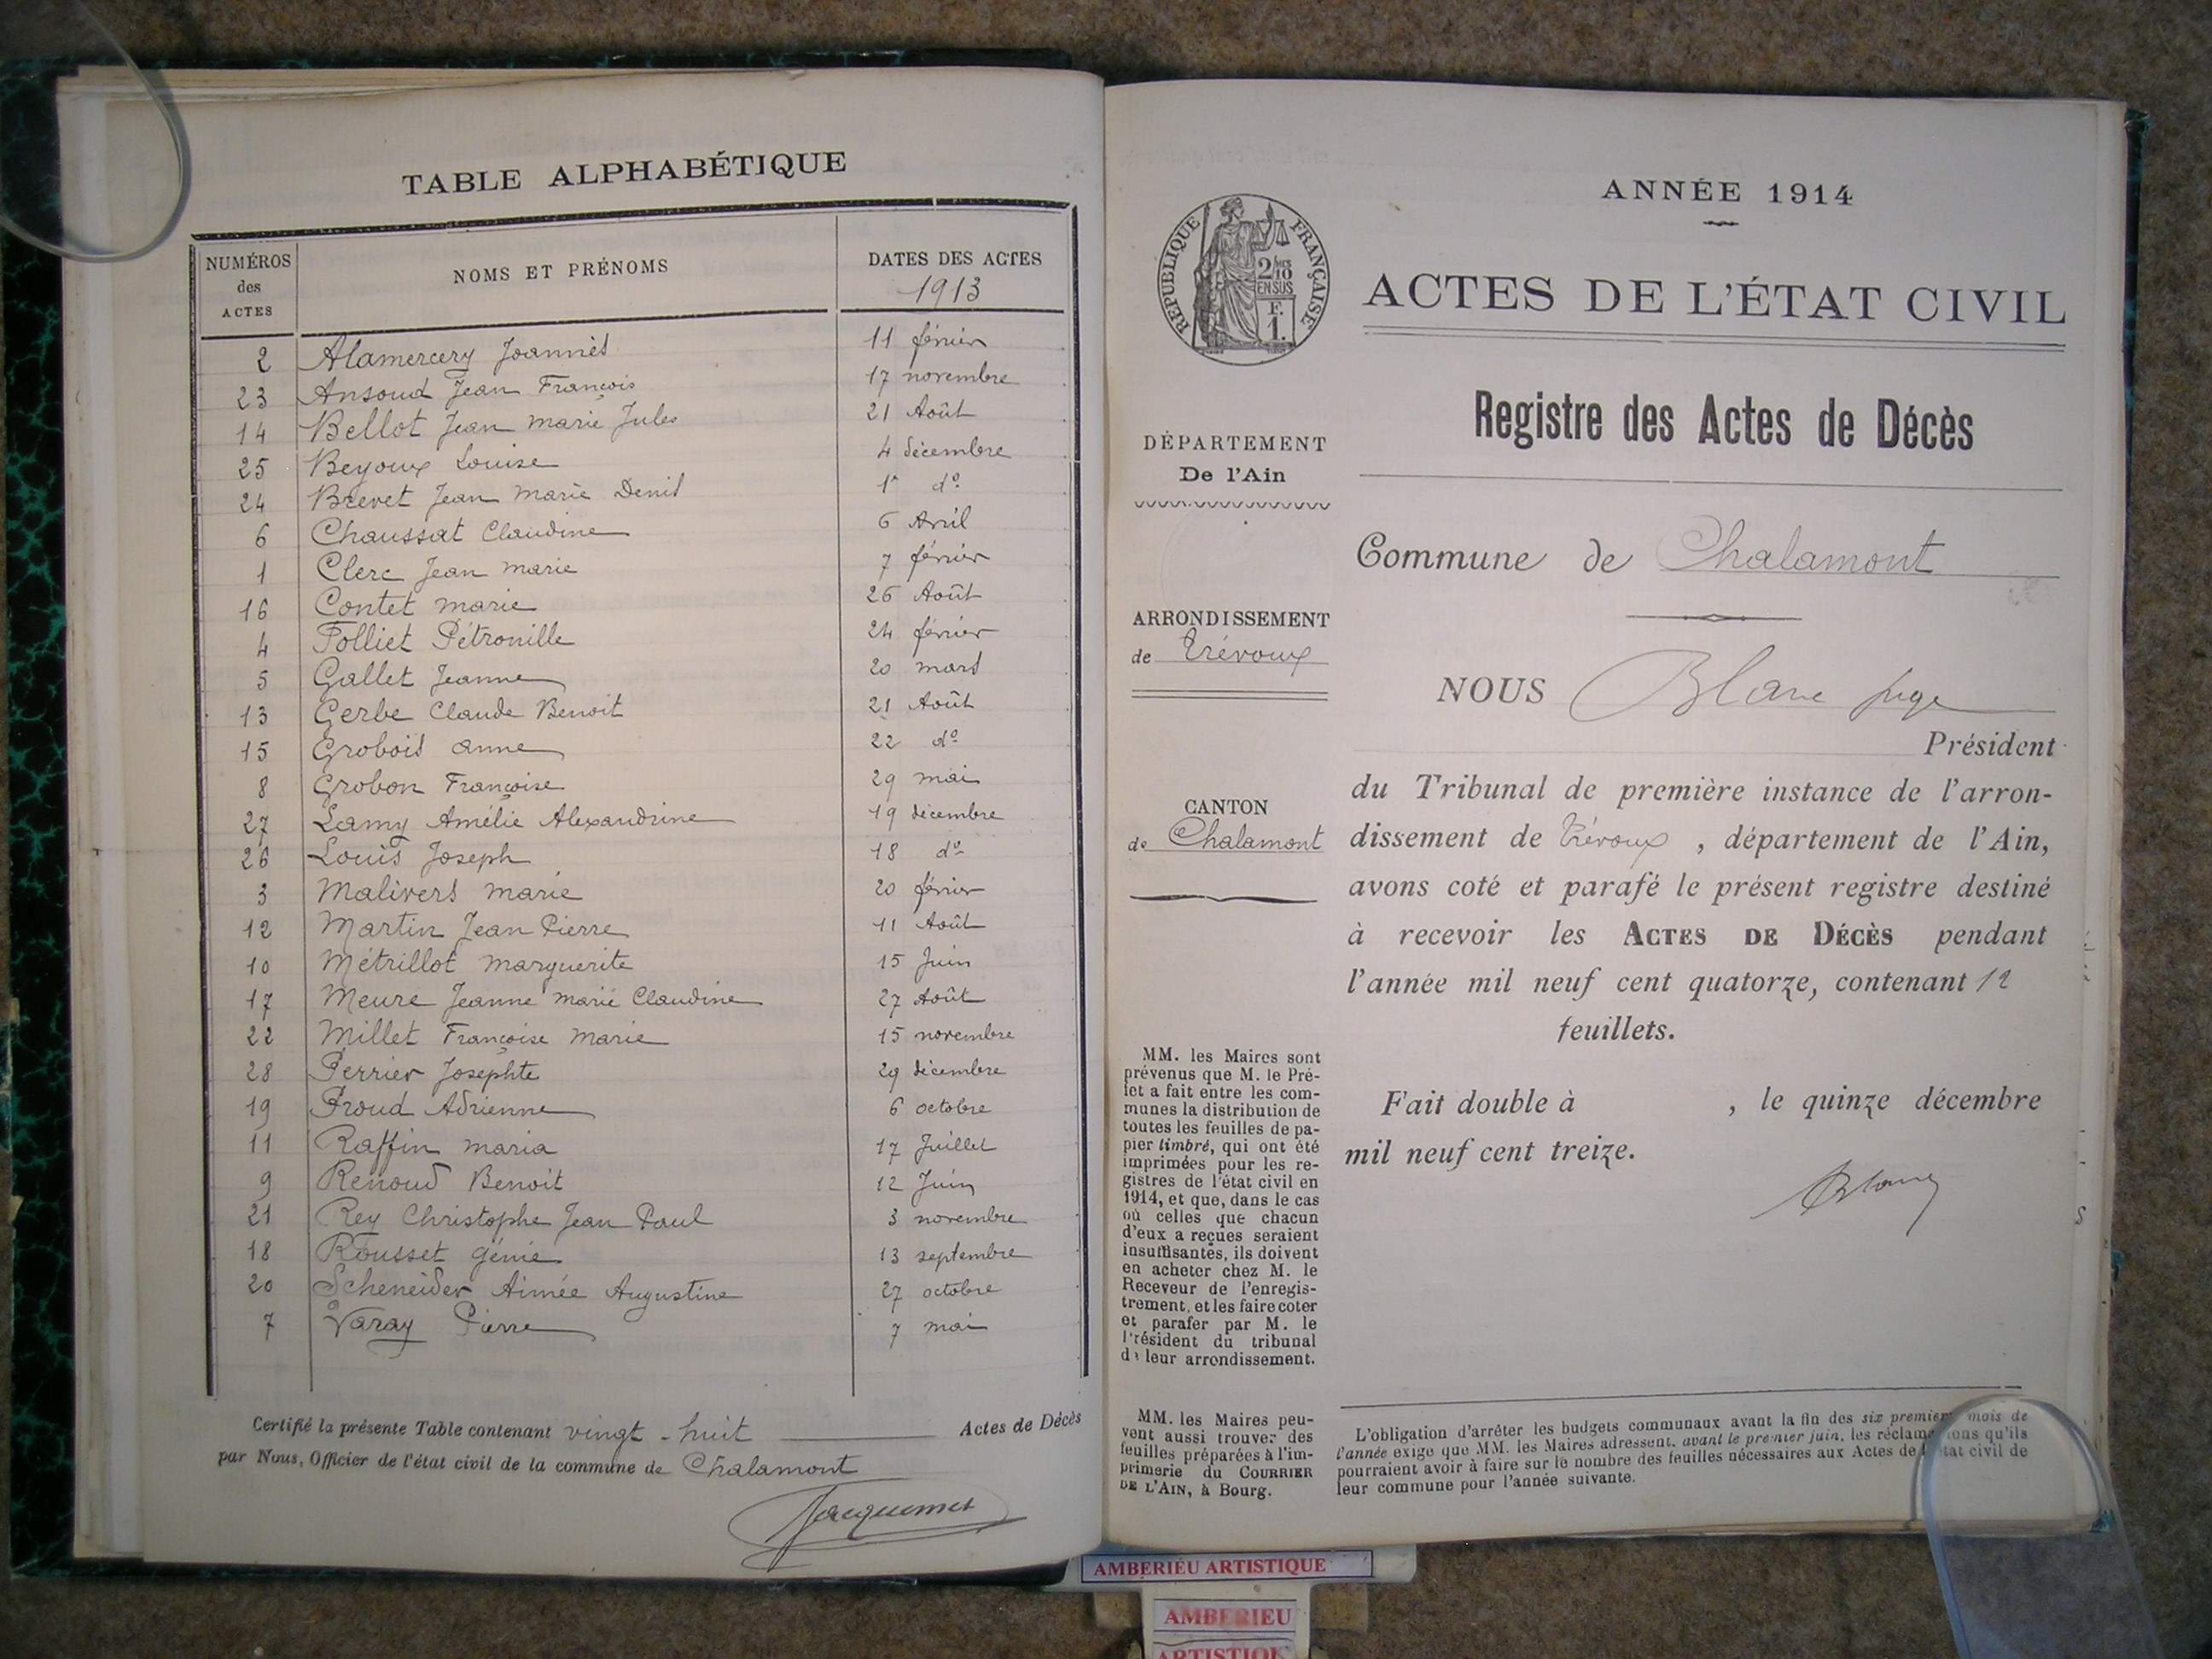 TABLE ALPHABÉTIQUE
NUMÉROS des ACTES
NOMS ET PRÉNOMS
DATES DES ACTES
1913
2 Alamercery Joannès 11 février
23 Ansoud Jean François 17 novembre
14 Bellot Jean Marie Jules 21 Août
25 Beyoux Louise 4 décembre
24 Brevet Jean Marie Denis 1er do
6 Chaussat Claudine 6 Avril
1 Clerc Jean Marie 7 février
16 Contet Marie 26 Août
4 Folliet Pétronille 24 février
5 Gallet Jeanne 20 mars
13 Gerbe Claude Benoit 21 Août
15 Grobois Anne 22 do
8 Grobon Françoise 29 mai
27 Lamy Amélie Alexandrine 19 décembre
26 Louis Joseph 18 do
3 Malivers Marie 20 février
12 Martin Jean Pierre 11 Août
10 Métrillot Marguerite 15 Juin
17 Meure Jeanne Marie Claudine 27 Août
22 Millet Françoise Marie 15 novembre
28 Perrier Josephte 29 décembre
19 Proud Adrienne 6 octobre
11 Raffin Maria 17 Juillet
9 Renoud Benoit 12 Juin
21 Rey Christophe Jean Paul 3 novembre
18 Rousset Génie 13 septembre
20 Scheneider Aimée Augustine 27 octobre
7 Varay Pierre 7 mai
Certifié la présente Table contenant vingt-huit Actes de Décès
par Nous, Officier de l'état civil de la commune de Chalamont
Jacquemet
ANNÉE 1914
RÉPUBLIQUE FRANÇAISE
2/10 EN SUS
F. 1.
ACTES DE L'ÉTAT CIVIL
Registre des Actes de Décès
DÉPARTEMENT
De l'Ain
Commune de Chalamont
ARRONDISSEMENT
de Trévoux
NOUS Blanc juge
Président
CANTON
de Chalamont
du Tribunal de première instance de l'arron-
dissement de Trévoux, département de l'Ain,
avons coté et parafé le présent registre destiné
à recevoir les ACTES DE DÉCÈS pendant
l'année mil neuf cent quatorze, contenant 12
feuillets.
Fait double à , le quinze décembre
mil neuf cent treize.
Blanc
MM. les Maires sont
prévenus que M. le Pré-
fet a fait entre les com-
munes la distribution de
toutes les feuilles de pa-
pier timbré, qui ont été
imprimées pour les re-
gistres de l'état civil en
1914, et que, dans le cas
où celles que chacun
d'eux a reçues seraient
insuffisantes, ils doivent
en acheter chez M. le
Receveur de l'enregis-
trement, et les faire coter
et parafer par M. le
Président du tribunal
de leur arrondissement.
MM. les Maires peu-
vent aussi trouver des
feuilles préparées à l'im-
primerie du COURRIER
DE L'AIN, à Bourg.
L'obligation d'arrêter les budgets communaux avant la fin des six premiers mois de
l'année exige que MM. les Maires adressent, avant le premier juin, les réclamations qu'ils
pourraient avoir à faire sur le nombre des feuilles nécessaires aux Actes de l'état civil de
leur commune pour l'année suivante.
AMBERIEU ARTISTIQUE
AMBERIEU
ARTISTIQUE